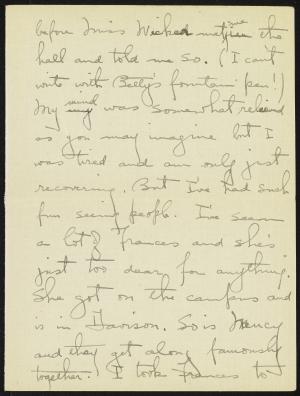 before Miss Wicked met me in the
hall and told me so. (I can't
write with Betty's fountain pen!)
My mind was somewhat relieved
as you may imagine but I
was tired and am only just
recovering. But I've had such
fun seeing people. I've seen
a lot of Frances and she's
just too dear for anything.
She got on the campus and
is in Davison. So is Nancy
and they get along famously
together. I took Frances to